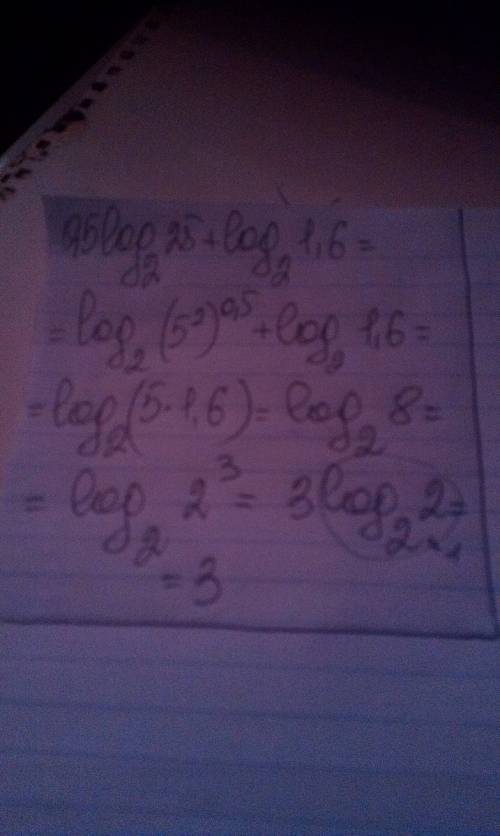 0,5log₂25+log₂1,6=
=log₂(5²)^0,5+log₂1,6=
=log₂(5·1,6)=log₂8=
=log₂2³=3log₂2=
=1
=3